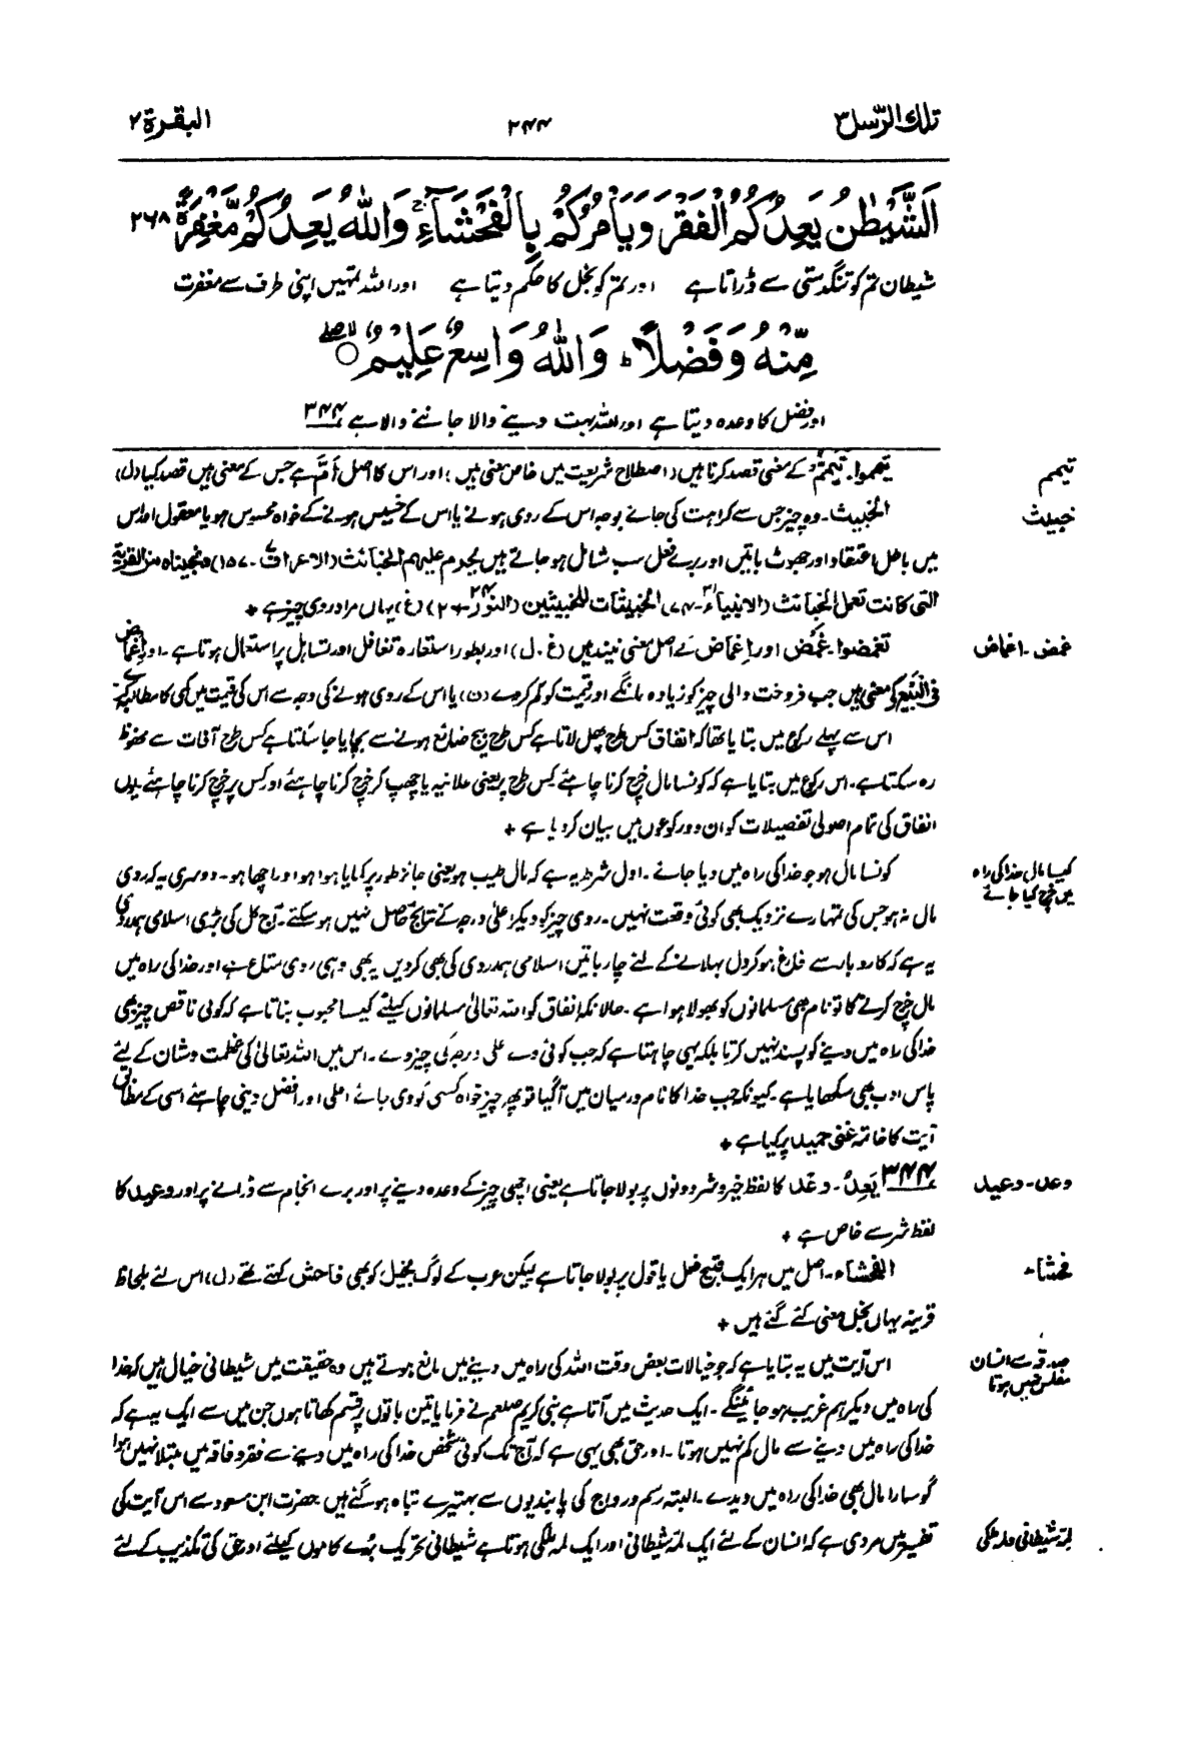 تلك الرّسل ٣
٢٤٤
البقرة ٢
اَلشَّيْطٰنُ يَعِدُكُمُ الْفَقْرَ وَيَاْمُرُكُمْ بِالْفَحْشَآءِ ۚ وَاللّٰهُ يَعِدُكُمْ مَّغْفِرَةً ٢٦٨
شیطان تم کو تنگدستی سے ڈراتا ہے اور تم کو بخل کا حکم دیتا ہے اور اللہ تمہیں اپنی طرف سے مغفرت
مِّنْهُ وَفَضْلًا ؕ وَاللّٰهُ وَاسِعٌ عَلِيْمٌ ۙ
اور فضل کا وعدہ دیتا ہے اور اللہ بہت دینے والا جاننے والا ہے ٣٤٤
تیمم
تیمموا۔ تیمّم کے معنی قصد کرنا ہیں (اصطلاح شریعت میں خاص معنی ہیں) اور اس کا اصل اَمَّ ہے جس کے معنی ہیں قصد کیا (ل)
خبیث
الخبیث۔ وہ چیز جس سے کراہت کی جائے بوجہ اس کے ردی ہونے یا اس کے خسیس ہونے کے خواہ محسوس ہو یا معقول اور اس
میں باطل اعتقاد اور جھوٹ باتیں اور برے فعل سب شامل ہو جاتے ہیں یحرم علیهم الخبائث (الاعراف ٧۔١٥٧) و نجیناه من القریة
التی کانت تعمل الخبائث (الانبیاء ٢١۔٧٤) الخبیثات للخبیثین (النور ٢٤۔٢٦) (غ) یہاں مراد ردی چیز ہے +
غمض۔ اغماض
تغمضوا۔ غمض اور اِغماض کے اصل معنی نیند ہیں (غ۔ل) اور بطور استعارہ تغافل اور تساہل پر استعمال ہوتا ہے۔ اور اِغماض
فی البیع کے معنی ہیں جب فروخت والی چیز کو زیادہ مانگے اور قیمت کو کم کردے (ن) یا اس کے ردی ہونے کی وجہ سے اس کی قیمت میں کمی کا مطالبہ کرے
اس سے پہلے رکوع میں بتایا تھا کہ انفاق کس طرح پھل لاتا ہے کس طرح بیج ضائع ہونے سے بچایا جا سکتا ہے کس طرح آفات سے محفوظ
رہ سکتا ہے۔ اس رکوع میں بتایا ہے کہ کونسا مال خرچ کرنا چاہئے کس طرح پر یعنی علانیہ یا چھپ کر خرچ کرنا چاہئے اور کس پر خرچ کرنا چاہئے یوں
انفاق کی تمام اصولی تفصیلات کو ان دو رکوعوں میں بیان کر دیا ہے +
کیسا مال خدا کی راہ
میں خرچ کیا جائے
کونسا مال ہو جو خدا کی راہ میں دیا جائے۔ اول شرط یہ ہے کہ مال طیب ہو یعنی جائز طور پر کمایا ہوا ہو اور اچھا ہو۔ دوسری یہ کہ ردی
مال نہ ہو جس کی تمہارے نزدیک بھی کوئی وقعت نہیں۔ ردی چیز کو دیکر اعلیٰ درجہ کے نتائج حاصل نہیں ہو سکتے۔ آج کل کی بڑی اسلامی ہمدردی
یہ ہے کہ کاروبار سے فارغ ہو کر دل بہلانے کے لئے چار باتیں اسلامی ہمدردی کی بھی کر دیں یہ بھی وہی ردی متاع ہے اور خدا کی راہ میں
مال خرچ کرنے کا تو نام بھی مسلمانوں کو بھولا ہوا ہے۔ حالانکہ انفاق کو اللہ تعالیٰ مسلمانوں کیلئے کیسا محبوب بناتا ہے کہ کوئی ناقص چیز بھی
خدا کی راہ میں دینے کو پسند نہیں کرتا بلکہ یہی چاہتا ہے کہ جب کوئی دے اعلیٰ درجہ کی چیز دے۔ اس میں اللہ تعالیٰ کی عظمت و شان کے لئے
پاس ادب بھی سکھایا ہے۔ کیونکہ جب خدا کا نام درمیان میں آگیا تو پھر چیز خواہ کسی کو دی جائے اعلی اور افضل دینی چاہئے اسی کے مطابق
آیت کا خاتمہ غنی حمید پر کیا ہے +
وعد۔ وعید
٣٤٤ یَعِدُ۔ وعد کا لفظ خیر و شر دونوں پر بولا جاتا ہے یعنی اچھی چیز کے وعدہ دینے پر اور برے انجام سے ڈرانے پر اور وعید کا
لفظ شر سے خاص ہے +
فحشاء
الفحشاء۔ اصل میں ہر ایک قبیح فعل یا قول پر بولا جاتا ہے لیکن عرب کے لوگ بخیل کو بھی فاحش کہتے تھے (ل) اس لئے بلحاظ
قرینہ یہاں بخل معنی کئے گئے ہیں +
صدقہ سے انسان
مفلس نہیں ہوتا
اس آیت میں یہ بتایا ہے کہ جو خیالات بعض وقت اللہ کی راہ میں دینے میں مانع ہوتے ہیں وہ حقیقت میں شیطانی خیال ہیں کہ خدا
کی راہ میں دیکر ہم غریب ہو جائینگے۔ ایک حدیث میں آتا ہے نبی کریم صلعم نے فرمایا تین باتوں پر قسم کھاتا ہوں جن میں سے ایک یہ ہے کہ
خدا کی راہ میں دینے سے مال کم نہیں ہوتا۔ اور حق بھی یہی ہے کہ آج تک کوئی شخص خدا کی راہ میں دینے سے فقر و فاقہ میں مبتلا نہیں ہوا
گو سارا مال بھی خدا کی راہ میں دیدے۔ البتہ رسم و رواج کی پابندیوں سے بہتیرے تباہ ہو گئے ہیں حضرت ابن مسعود سے اس آیت کی
لمۃ شیطانی و ملکی
تفسیر میں مروی ہے کہ انسان کے لئے ایک لمۃ شیطانی اور ایک لمہ ملکی ہوتا ہے شیطانی تحریک بُرے کاموں کیلئے اور حق کی تکذیب کے لئے